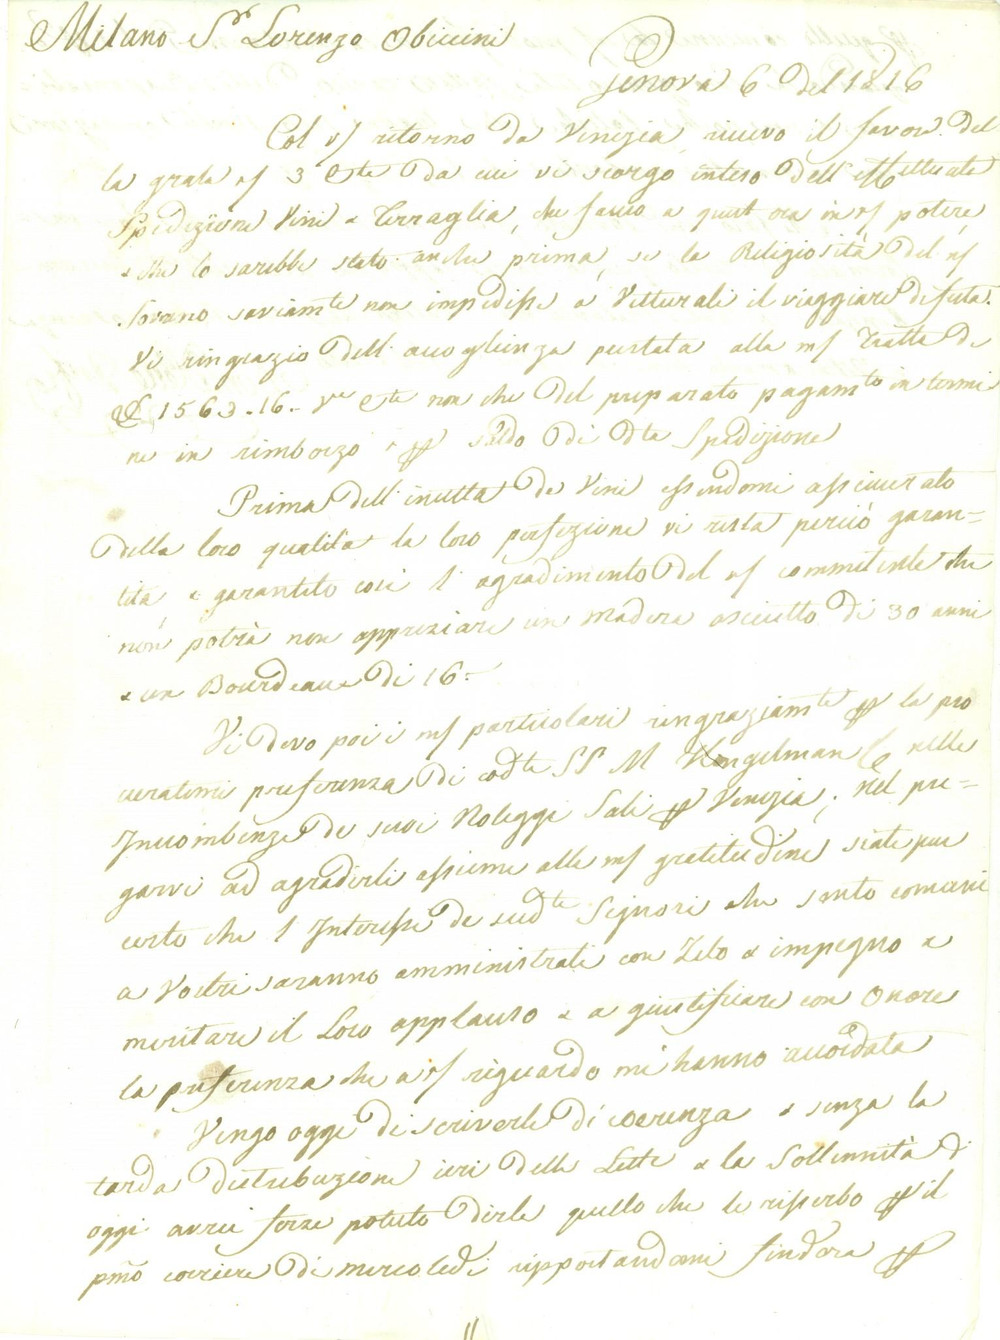 Milano Sr Lorenzo Obicini
Genova 6 del 1816
Col vs ritorno da Venezia, ricevo il favore del
la grata vs 3 Cte da cui vi scorgo inteso dell' effettuata
Spedizione Vini e Terraglia, che saranno a quest' ora in vs potere,
e che lo sarebbe stato anche prima, se la Religiosità del ns
Sovrano saviamte non impedisse a Vetturali il viaggiare di festa.
Vi ringrazio dell' accoglienza prestata alla ms Tratta di
£ 1563.16.- Vre Cte non che del preparato pagamto in termi
ne in rimborzo e pp saldo di dta Spedizione
Prima dell' invitta de Vini essendomi assicurato
della loro qualità la loro perfezione vi resta perciò garan=
tita e garantito così l' agradimento del vs committente che
non potrà non apprezziare un Madera asciutto di 30 anni
e un Bourdeaux di 16.-
Vi devo poi i ms particolari ringraziamti pp la pro
curatami preferenza di codti SS M Kengelman C nelle
Incombenze de suoi Noleggi Sali pp Venezia; nel pre=
garvi ad agradirli assieme alla ms gratitudine siate pur
certo che l' Interesse de sudti Signori che sento comuni
a Vostri saranno amministrati con Zelo e impegno a
meritare il Loro applauso e a giustificare con Onore
la preferenza che a vs riguardo mi hanno accordata
Vengo oggi di scriverle di coerenza e senza la
tarda distribuzione ieri delle Lette e la Sollennità d
oggi avrei forze potuto dirle quello che le risserbo pp il
pmo corriere di mercoledi ripportandomi sindora pp